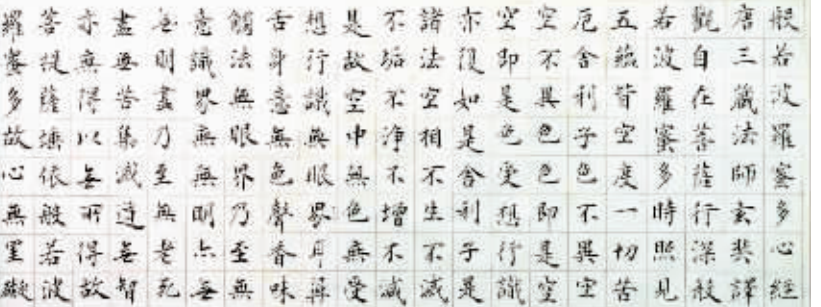 般若波羅蜜多心經
唐三藏法師玄奘譯
觀自在菩薩行深般
若波羅蜜多時照見
五蘊皆空度一切苦
厄舍利子色不異空
空不異色色即是空
空即是色受想行識
亦復如是舍利子是
諸法空相不生不滅
不垢不淨不增不減
是故空中無色無受
想行識無眼界耳鼻
舌身意無色聲香味
觸法無眼界乃至無
意識界無無明亦無
無明盡乃至無老死
盡無苦集滅道無智
亦無得以無所得故
菩提薩埵依般若波
羅蜜多故心無罣礙